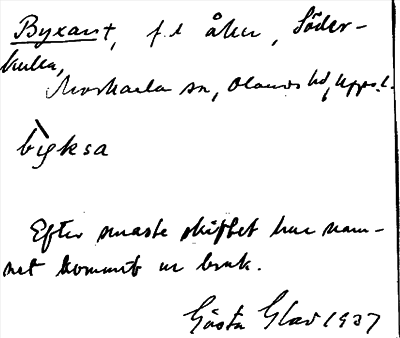 Byxan†, f.d åker, Söder-
kulla,
Morkarla sn, Olands hd, Upps.l.
bỳksa
Efter senaste skiftet har nam-
net kommit ur bruk.
Gösta Glad 1937